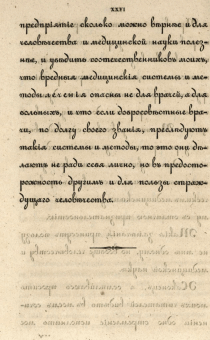 XXVI
предпріятіе сколько можно вѣрнѣе и для
человѣчества и медицинской науки полез-
нѣе, и увѣдить соотечественниковъ моихъ,
что вредныя медицинскія системы и ме-
тоды лѣченія опасны не для врачей, а для
больныхъ, и что если добросовѣстные вра-
чи, по долгу своего званія, преслѣдуютъ
такія системы и методы, то это они дѣ-
лаютъ не ради себя лично, но въ предосто-
рожность другимъ и для пользы страж-
дущаго человѣчества.